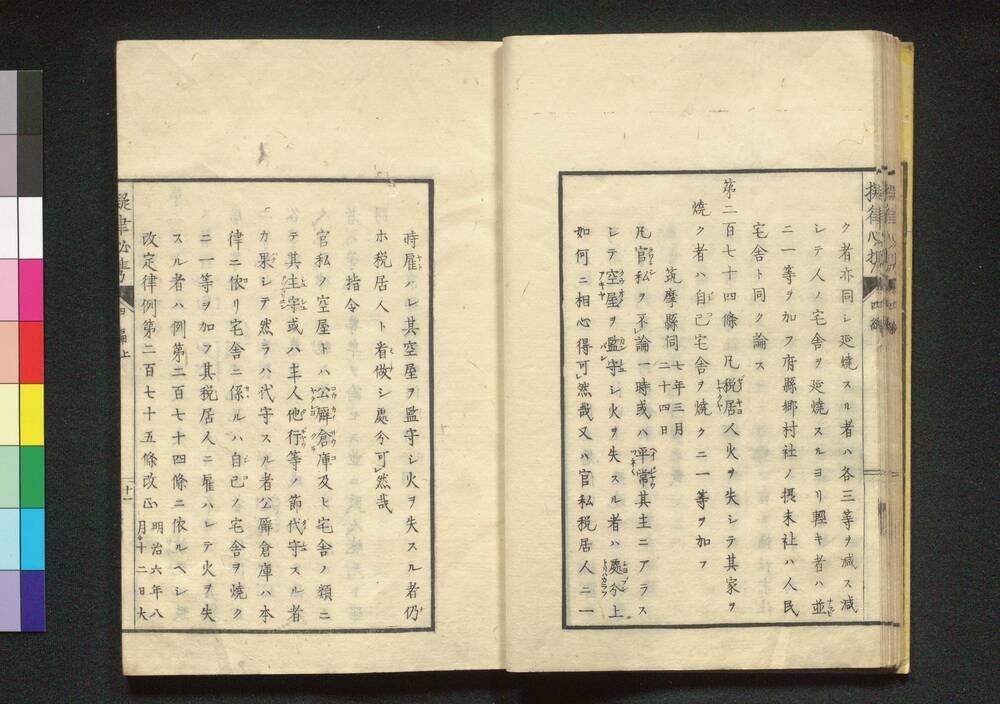 ク者亦同シ延燒スル者ハ各三等ヲ減ス減
シテ人ノ宅舎ヲ延燒スルヨリ輕キ者ハ並
ニ一等ヲ加フ府縣郷村社ノ摂末社ハ人民
宅舎ト同ク論ス
第二百七十四條 凡税居人火ヲ失シテ其家ヲ
燒ク者ハ自己宅舎ヲ燒ク二一等ヲ加フ
筑摩縣伺 七年三月二十四日
凡官私ヲ不論一時或ハ平常其主ニアラス
シテ空屋ヲ監守シ火ヲ失スル者ハ處分上
如何ニ相心得可然哉又ハ官私税居人ニ一
時雇ハレ其空屋ヲ監守シ火ヲ失スル者仍
ホ税居人ト看做シ處分可然哉
指令
官私ノ空屋トハ公廨倉庫及ヒ宅舎ノ類ニ
テ其主守或ハ主人他行等ノ節代守スル者
カ果シテ然ラハ代守スル者公廨倉庫ハ本
律ニ依リ宅舎ニ係ルハ自己ノ宅舎ヲ燒ク
ニ一等ヲ加フ其税居人ニ雇ハレテ火ヲ失
スル者ハ例第二百七十四條ニ依ルヘシ
改定律例第二百七十五條改正 明治六年八月十二日大
四編上
十一